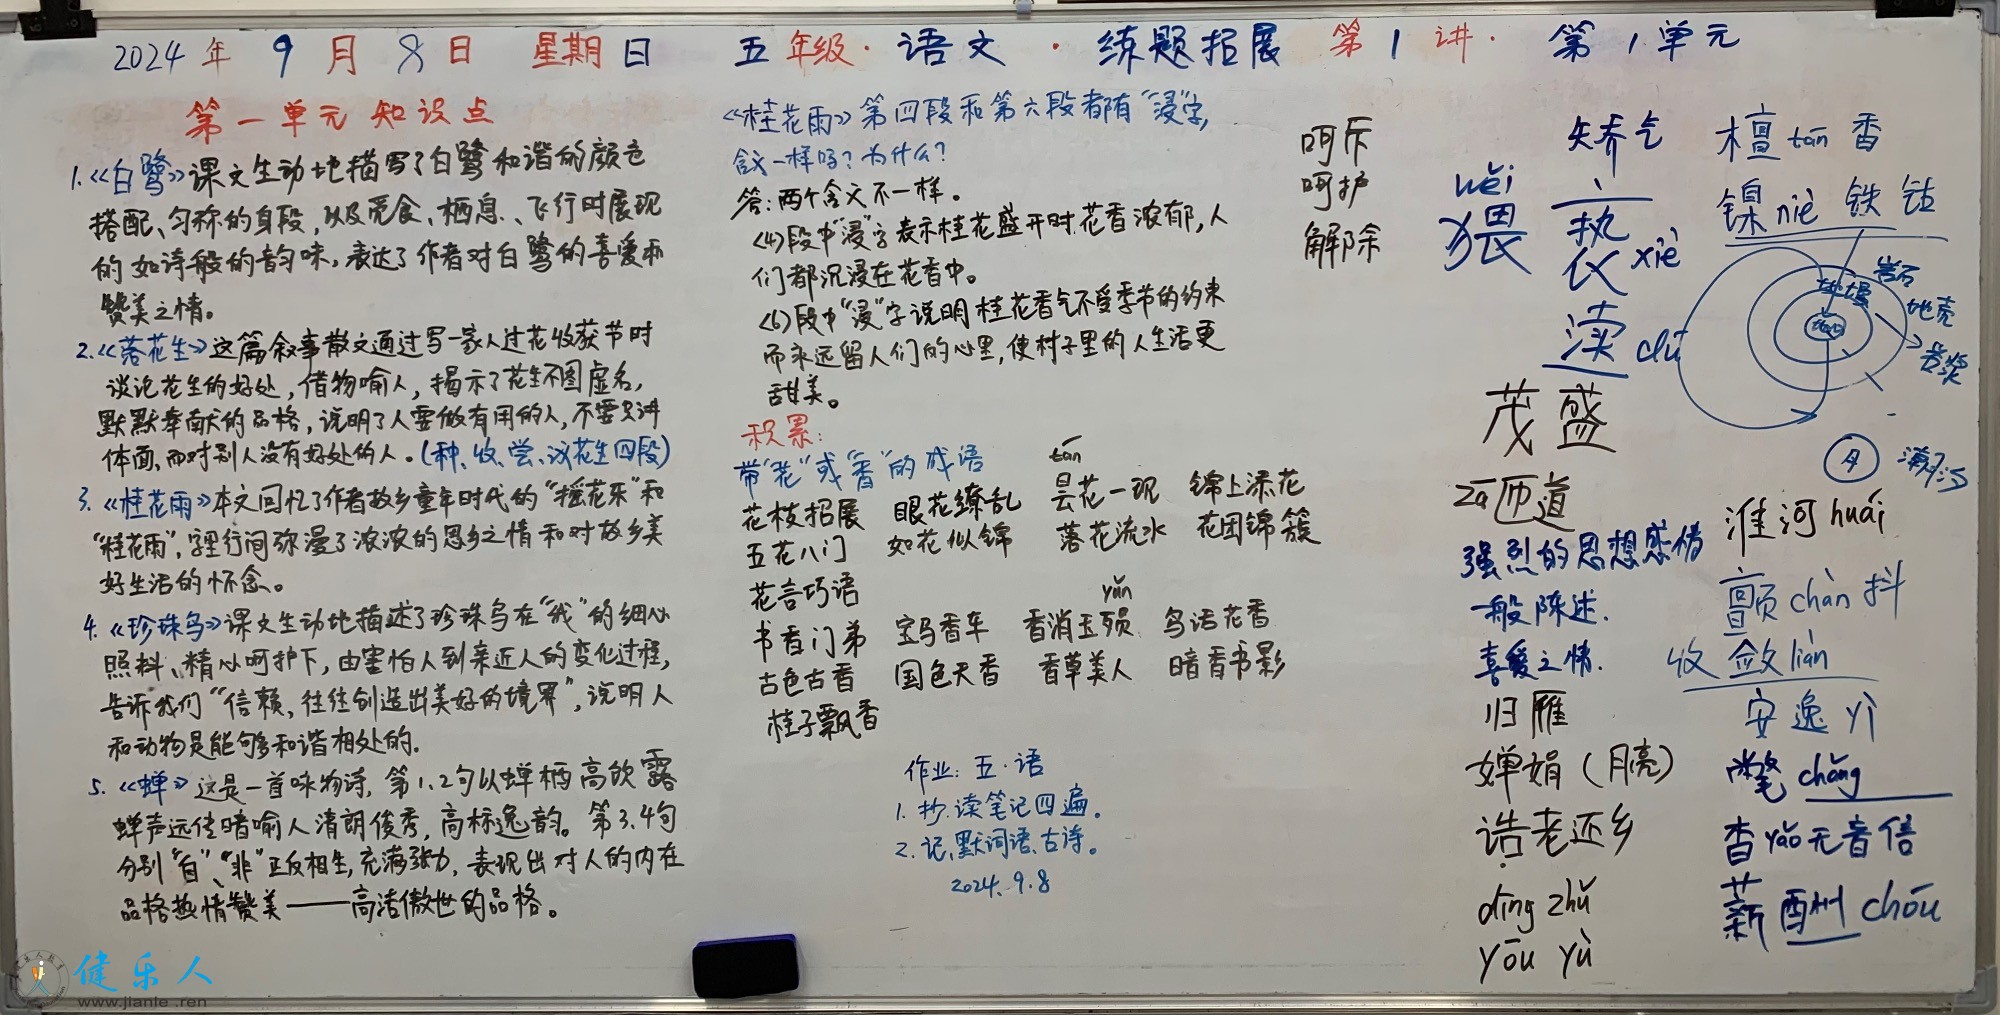 2024年 9月8日 星期日 五年级·语文·练题拓展 第1讲·第1单元
第一单元知识点
1.《白鹭》课文生动地描写了白鹭和谐的颜色
搭配、匀称的身段,以及觅食、栖息、飞行时展现
的如诗般的韵味,表达了作者对白鹭的喜爱和
赞美之情。
2.《落花生》这篇叙事散文通过写一家人过花收获节时
谈论花生的好处,借物喻人,揭示了花生不图虚名,
默默奉献的品格,说明了人要做有用的人,不要只讲
体面,而对别人没有好处的人。(种、收、尝、议花生四段)
3.《桂花雨》本文回忆了作者故乡童年时代的“摇花乐”和
“桂花雨”,字里行间弥漫了浓浓的思乡之情和对故乡美
好生活的怀念。
4.《珍珠鸟》课文生动地描述了珍珠鸟在“我”的细心
照料、精心呵护下,由害怕人到亲近人的变化过程,
告诉我们“信赖,往往创造出美好的境界”,说明人
和动物是能够和谐相处的。
5.《蝉》这是一首咏物诗,第1.2句以蝉栖高饮露
蝉声远传暗喻人清朗俊秀,高标逸韵。第3.4句
分别“自”、“非”正反相生,充满张力,表现出对人的内在
品格热情赞美——高洁傲世的品格。
《桂花雨》第四段和第六段都有“浸”字,
含义一样吗?为什么?
答:两个含义不一样。
<4>段中“浸”字表示桂花盛开时,花香浓郁,人
们都沉浸在花香中。
<6>段中“浸”字说明桂花香气不受季节的约束
而永远留人们的心里,使村子里的人生活更
甜美。
积累:
带“花”或“香”的成语
tán
花枝招展 眼花缭乱 昙花一现 锦上添花
五花八门 如花似锦 落花流水 花团锦簇
花言巧语
yǔn
书香门弟 宝马香车 香消玉殒 鸟语花香
古色古香 国色天香 香草美人 暗香书影
桂子飘香
作业:五·语
1.抄.读笔记四遍。
2.记、默词语、古诗。
2024.9.8
呵斥
呵护
解除
娇气
wěi
猥
亵 xiè
渎 dú
茂盛
zā 匝道
强烈的思想感情
一般陈述.
喜爱之情.
归雁
婵娟(月亮)
诰老还乡
dīng zhǔ
yōu yù
檀 tán 香
镍 niè 铁 钴
岩石
地幔
地壳
地心
岩浆
月
潮汐
淮河 huái
颤 chàn 抖
收敛 liǎn
安逸 yì
氅 chǎng
杳 yǎo 无音信
薪酬 chóu
健乐人
www.jianle.ren